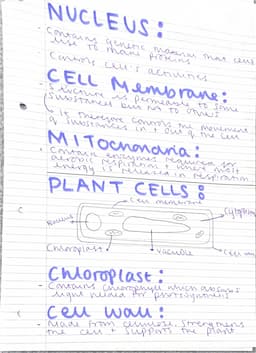 NUCLEUS:
- Contains genetic material that cells
use to make proteins
- Controls cell's activities
CELL Membrane:
- Structure is permeable to some
substances but not to others
It therefore controls the movement
of substances in + out of the cell
Mitochondria:
- Contain enzymes required for
aerobic respiration + where most
energy is released in respiration
PLANT CELLS:
cell membrane
Nucleus
Cytoplasm
Chloroplast
vacuole
cell wall
Chloroplast:
- Contains chlorophyll which absorbs
light needed for photosynthesis
Cell wall:
- Made from cellulose. Strengthens
the cell + supports the plant